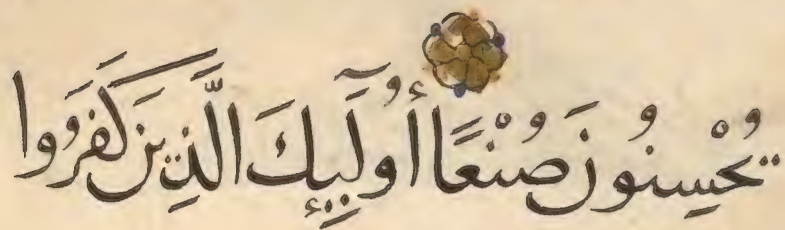 يُحْسِنُونَ صُنْعًا أُولَٰئِكَ الَّذِينَ كَفَرُوا